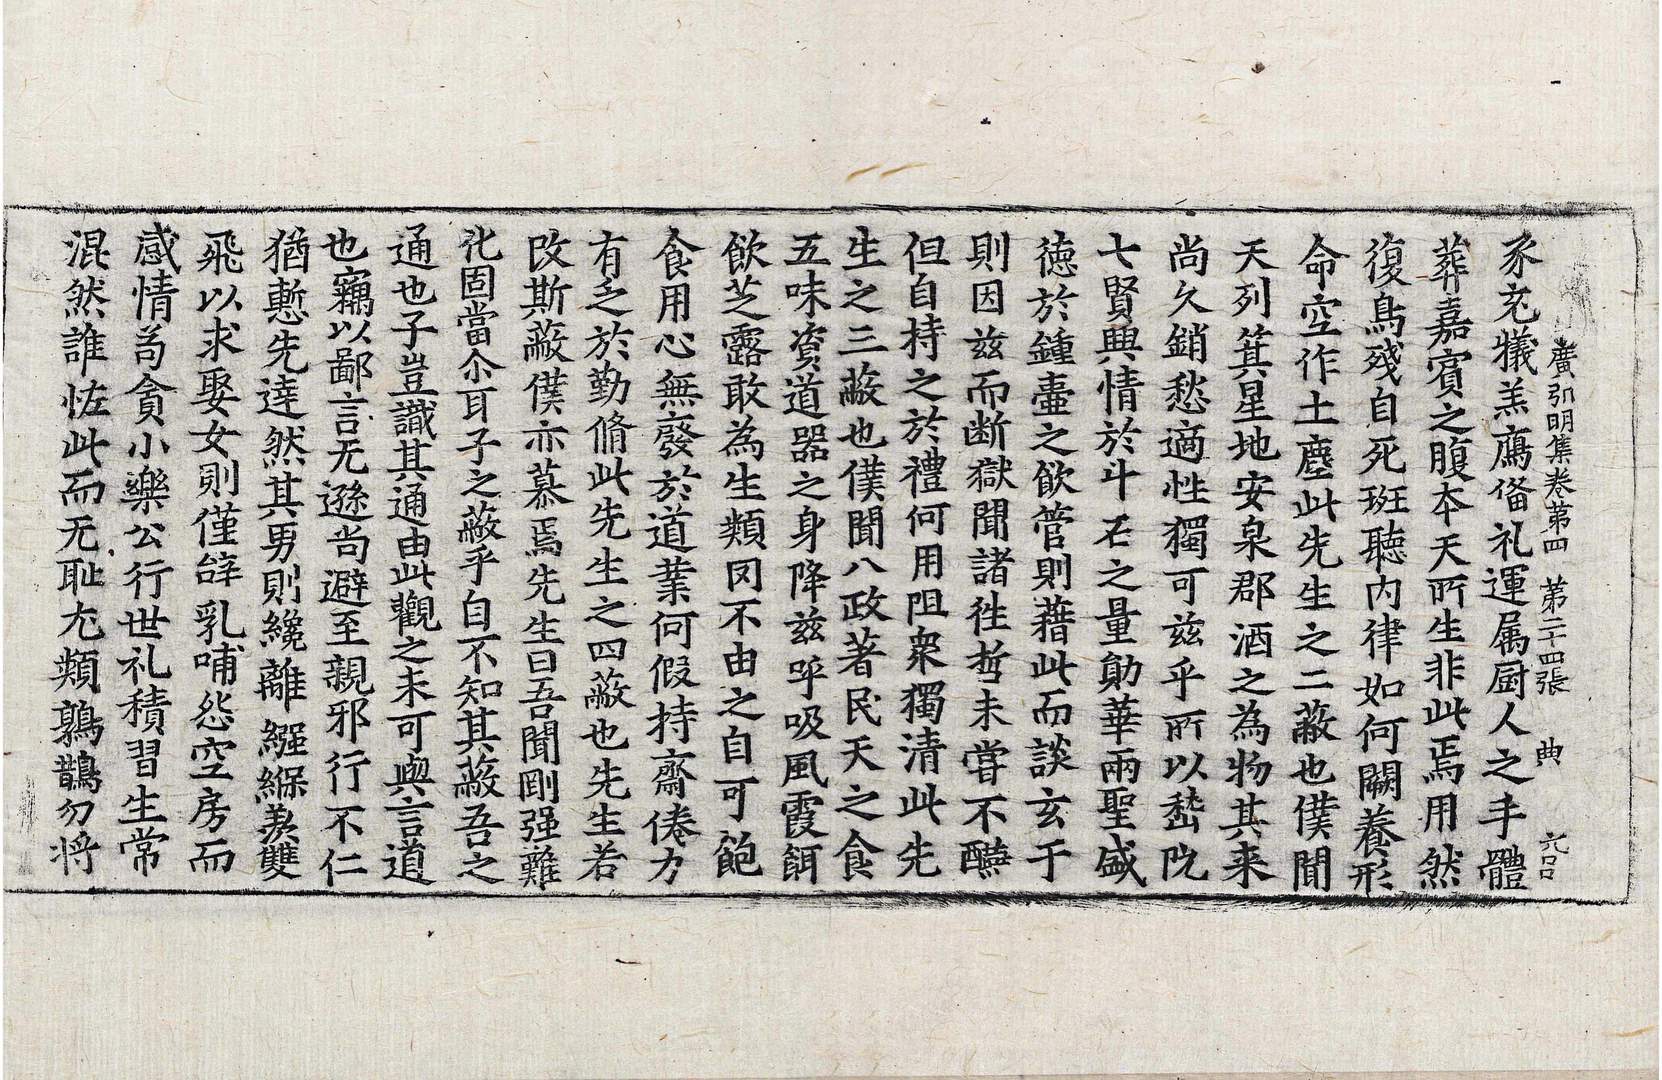 廣弘明集卷第四　第二十四張　典　元呂
豕充犧羔鴈俻礼運属厨人之手體
葬嘉賓之腹本天所生非此焉用然
復鳥殘自死班聽内律如何闕養形
命空作土塵此先生之二蔽也僕聞
天列箕星地安泉郡酒之為物其来
尚久銷愁適性獨可兹乎所以嵆阮
七賢興情於斗石之量勛華兩聖盛
徳於鍾壷之飲管則藉此而談玄于
則因兹而断獄聞諸徃哲未嘗不醼
但自持之於禮何用阻衆獨清此先
生之三蔽也僕聞八政著民天之食
五味資道器之身降兹呼吸風霞餌
飲芝露敢為生類罔不由之自可飽
食用心無廢於道業何假持齋倦力
有乏於勤脩此先生之四蔽也先生若
改斯蔽僕亦慕焉先生曰吾聞剛强難
化固當尒耳子之蔽乎自不知其蔽吾之
通也子豈識其通由此觀之未可與言道
也竊以鄙言无遜尚避至親邪行不仁
猶慙先達然其男則纔離繦緥羨雙
飛以求娶女則僅辤乳哺怨空房而
感情苟貪小樂公行世礼積習生常
混然誰恠此而无耻尤類鶉鵲勿将